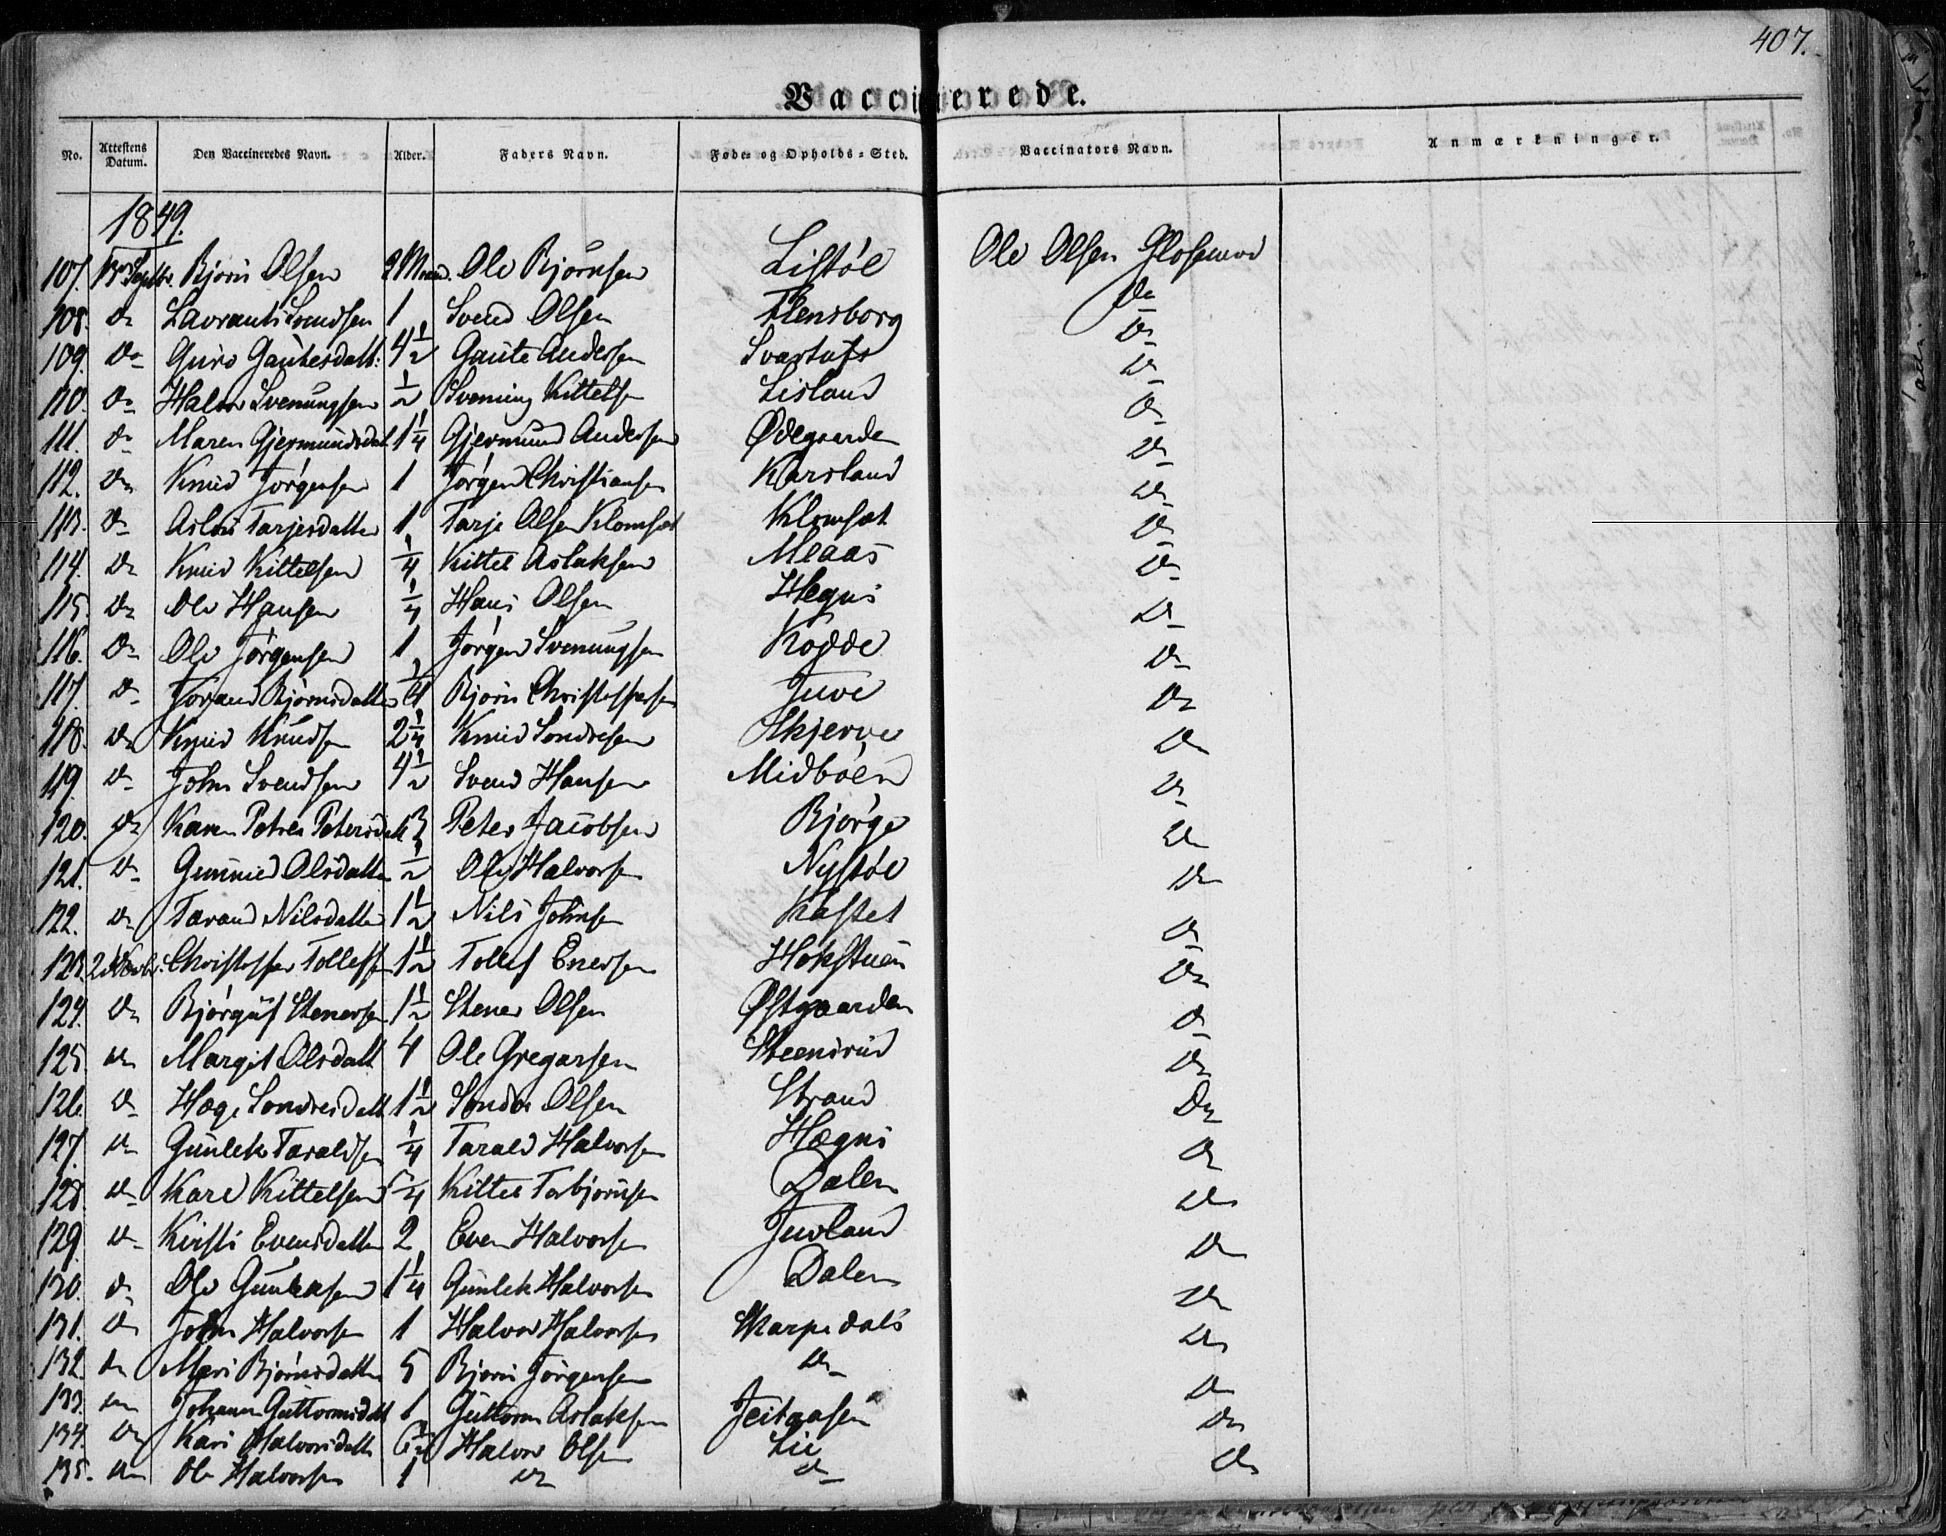 407.
Vaccinerede.
No. Attestens Datum. Den Vaccineredes Navn. Alder. Faders Navn. Føde- og Opholds-Sted. Vaccinators Navn. Anmærkninger.
1849.
107. Septbr. Bjørn Olsen 2 Ole Bjørnsen Listøl Ole Olsen
108. Do Lavrants Svendsen 1 Svend Olsen Flensborg Do
109. Do Guro Gautesdatt: 4 1/2 Gaute Andersen Do
110. Do Halvor Svenungsen 1/2 Svenning Kittelsen Lisland Do
111. Do Maren Gjermundsdat 1 1/4 Gjermund Andersen Ødegaarden Do
112. Do Knud Jørgensen 1 Jørgen Christiansen Karsland Do
113. Do Aslou Tarjesdatter 1 Tarje Olsen Klomset Klomset Do
114. Do Knud Kittelsen 1/4 Kittel Aslaksen Meaas Do
115. Do Ole Hansen 1/4 Hans Olsen Hegni Do
116. Do Ole Jørgensen 1 Jørgen Svenungsen Kodde Do
117. Do Torand Bjørnsdatter 1/4 Bjørn Christophersen Juve Do
118. Do Knud Knudsen 2 1/4 Knud Sondresen Skjerve Do
119. Do John Svendsen 4 1/2 Svend Hansen Midbøen Do
120. Do Karen Petrea Petersdatt 3 Peter Jacobsen Bjørge Do
121. Do Gunnild Olsdatter 1/2 Ole Halvorsen Nystøl Do
122. Do Tarand Nilsdatter 1 1/2 Nils Johnsen Kastet Do
123. Christopher Tollefsen 1 1/2 Tollef Enersen Hokstuen Do
124. Do Bjørguf Stenersen 1 1/2 Stener Olsen Østgaarden Do
125. Do Margit Olsdatt 4 Ole Gregarsen Steensrud Do
126. Do Hæge Sondresdatt 1 1/2 Sondre Olsen Strand Do
127. Do Gunlek Taraldsen 1/4 Tarald Halvorsen Hægni Do
128. Do Kittelsen 5/4 Kittel Torbjørnsen Dalen Do
129. Do Kirsti Evensdatter 2 Even Halvorsen Juvland Do
130. Do Ole Gunleksen 1 1/4 Gunlek Halvorsen Dalen Do
131. Do John Halvorsen 1 Halvor Halvorsen Skarpedals Do
132. Do Mari Bjørnsdatter 5 Bjørn Jørgensen Do Do
133. Do Guttormsdatt 1 Guttorm Aslaksen Do
134. Do Kari Halvorsdatter Halvor Olsen Lie Do
135. Do Ole Halvorsen 1 Do Do Do